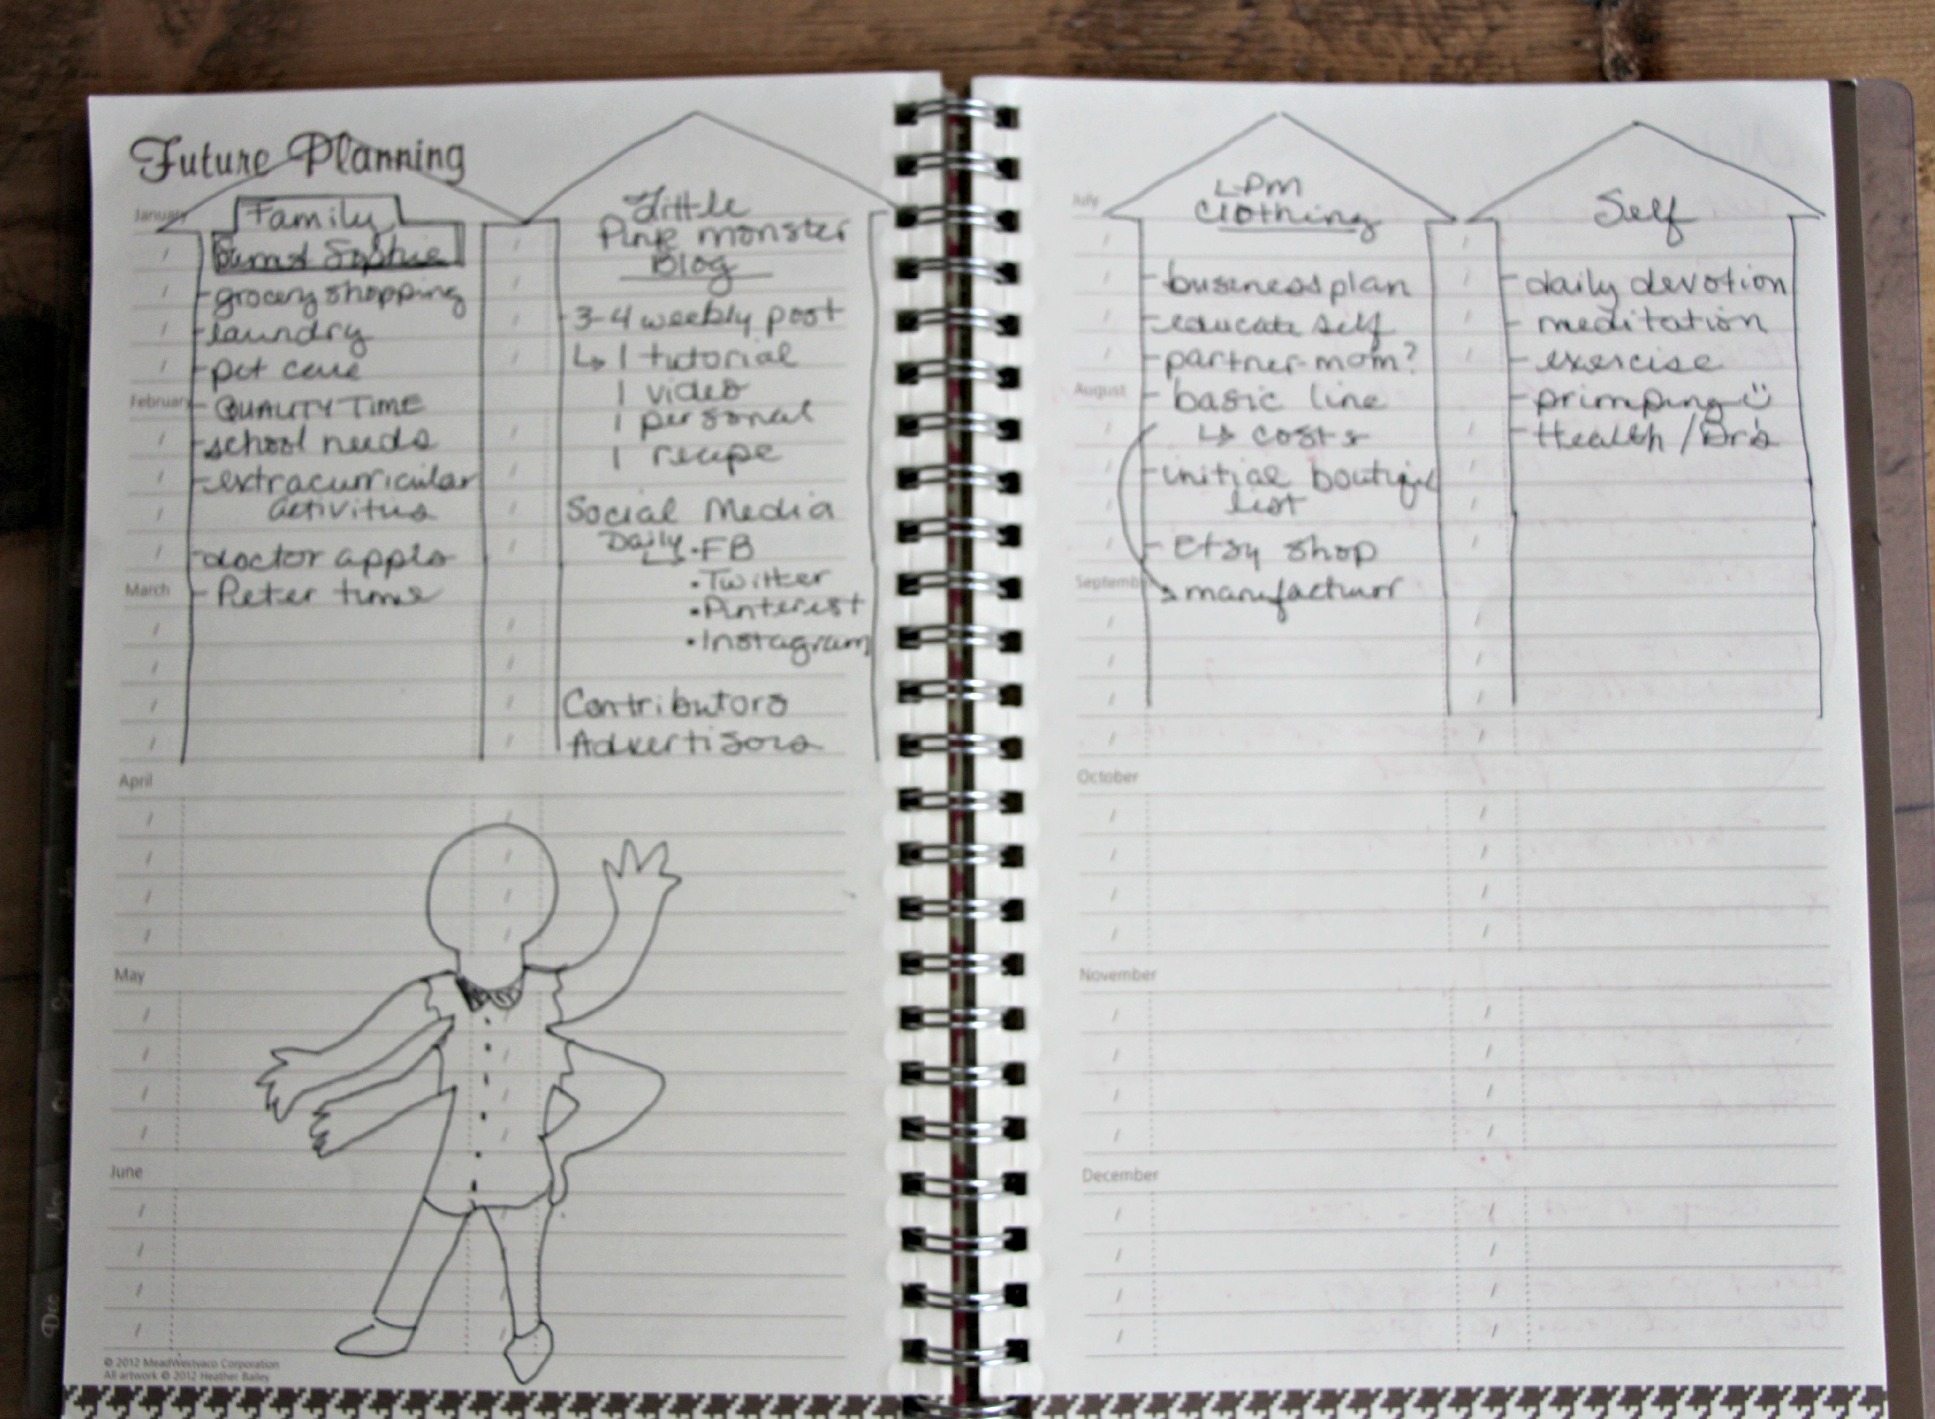 Future Planning
Family
grocery shopping
laundry
pet care
QUALITY TIME
school needs
extracurricular
activities
doctor appts
Peter time
Little
Pink monster
Blog
3-4 weekly post
↳ 1 tutorial
1 video
1 personal
1 recipe
Social Media
Daily
↳ • FB
• Twitter
• Pinterest
• Instagram
Contributors
Advertisors
January
February
March
April
May
June
© 2012 MeadWestvaco Corporation
All artwork © 2012 Heather Bailey
LPM
Clothing
- business plan
- educate self
- partner-mom?
- basic line
↳ costs
- initial boutique
list
- Etsy shop
manufacturr
Self
- daily devotion
- meditation
- exercise
- primping
- Health/Dr's
July
August
September
October
November
December
Dec
Nov
Oct
Sep